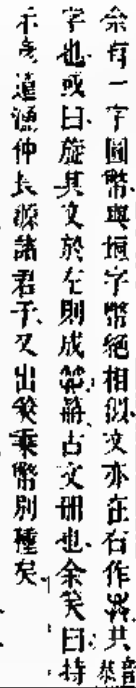 余有一字圜幣與垣字幣絕相似文亦在右作共
字也或曰旋其文於左則成古文冊也余笑曰持
示彥遠仲長源諸君子又出笑葉幣別種矣